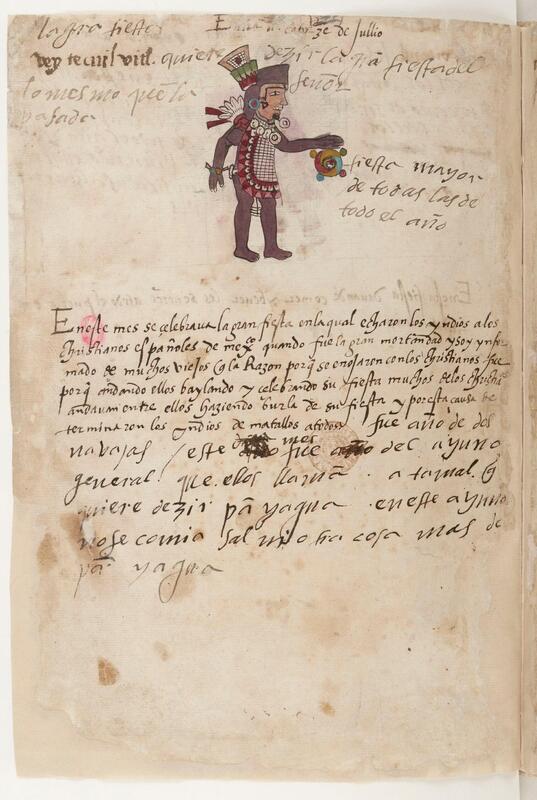 la gra fiesta
Entra a catorze de Jullio
vey tecuil vitl. quiere dezir la grã fiesta del
señor
lo mesmo que la
pasada
fiesta mayor
de todas las de
todo el año
En este mes se celebraua la gran fiesta en la qual echaron los yndios a los
christianos españoles de mexco quando fue la gran mortandad y soy ynfor
mado de muchos viejos q la Razon porq se enojaron con los christianos fue
porq andando ellos baylando y celebrando su fiesta muchos de los christianos
andauan entre ellos haziendo burla de su fiesta y por esta causa de
terminaron los yndios de matallos a todos fue año de dos
nauajas / este mes fue año del ayuno
general que ellos llaman atamal q
quiere dezir pã y agua en este ayuno
no se comia sal ni otra cosa mas de
pã y agua